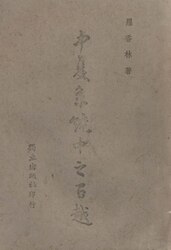 羅香林著
中夏系統中之百越
獨立出版社印行